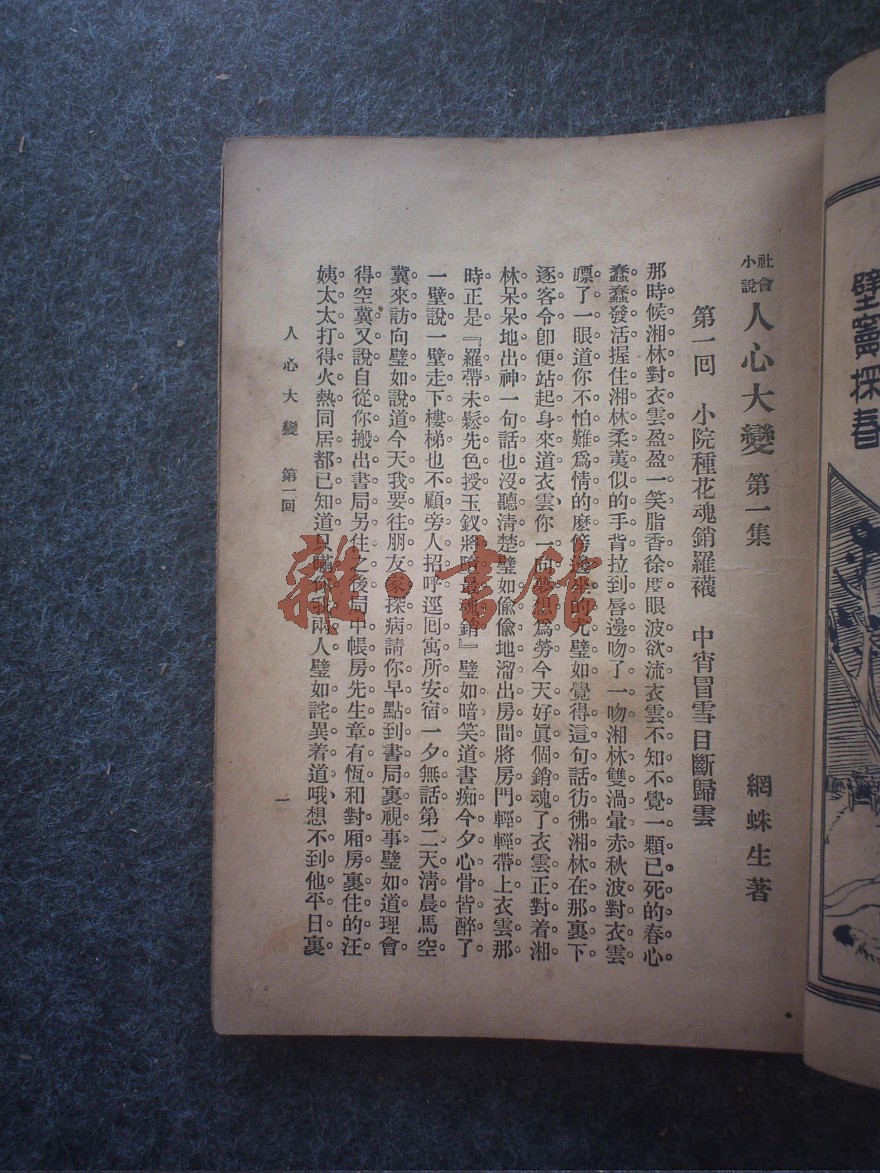 璧竇探春
社會小說 人心大變 第一集 網蛛生著
第一回 小院種花魂銷羅襪 中宵冒雪目斷歸雲
那時候湘林對衣雲盈盈一笑脂香徐度眼波欲流衣雲不知不覺一顆已死的春心
蠢蠢發活握住湘林柔荑似的手背拉到唇邊吻了一吻湘林雙渦暈赤秋波對衣雲
瞟了一眼道你不怕難爲情的麽傍邊坐的尤璧如覺得這句話彷彿湘林在那裏下
逐客令卽便站起身來道衣雲你一向夢想爲勞今天好眞個銷魂了衣雲正對着湘
林呆呆地出神一句話也沒聽清楚璧如偷偷地溜出房間將房門輕輕帶上衣雲那
時正是『羅帶未鬆先色授玉釵將陪最魂銷』璧如暗笑道書痴今夕心骨皆醉了
一壁說一壁走下樓梯也不顧旁人招呼逕囘寓所安宿一夕無話第二天淸晨馬空
冀來訪向璧如說道今天我要往朋友家探病請你早點到書局裏視事璧如道理會
得空冀又說自從你搬出書局另住之後局中帳房先生章有恆和對廂房裏住的汪
姨太太打得火熱同居都已知道只瞞你我兩人璧如詫異着道哦想不到他平日裏
人心大變 第一回 一
雜·書館